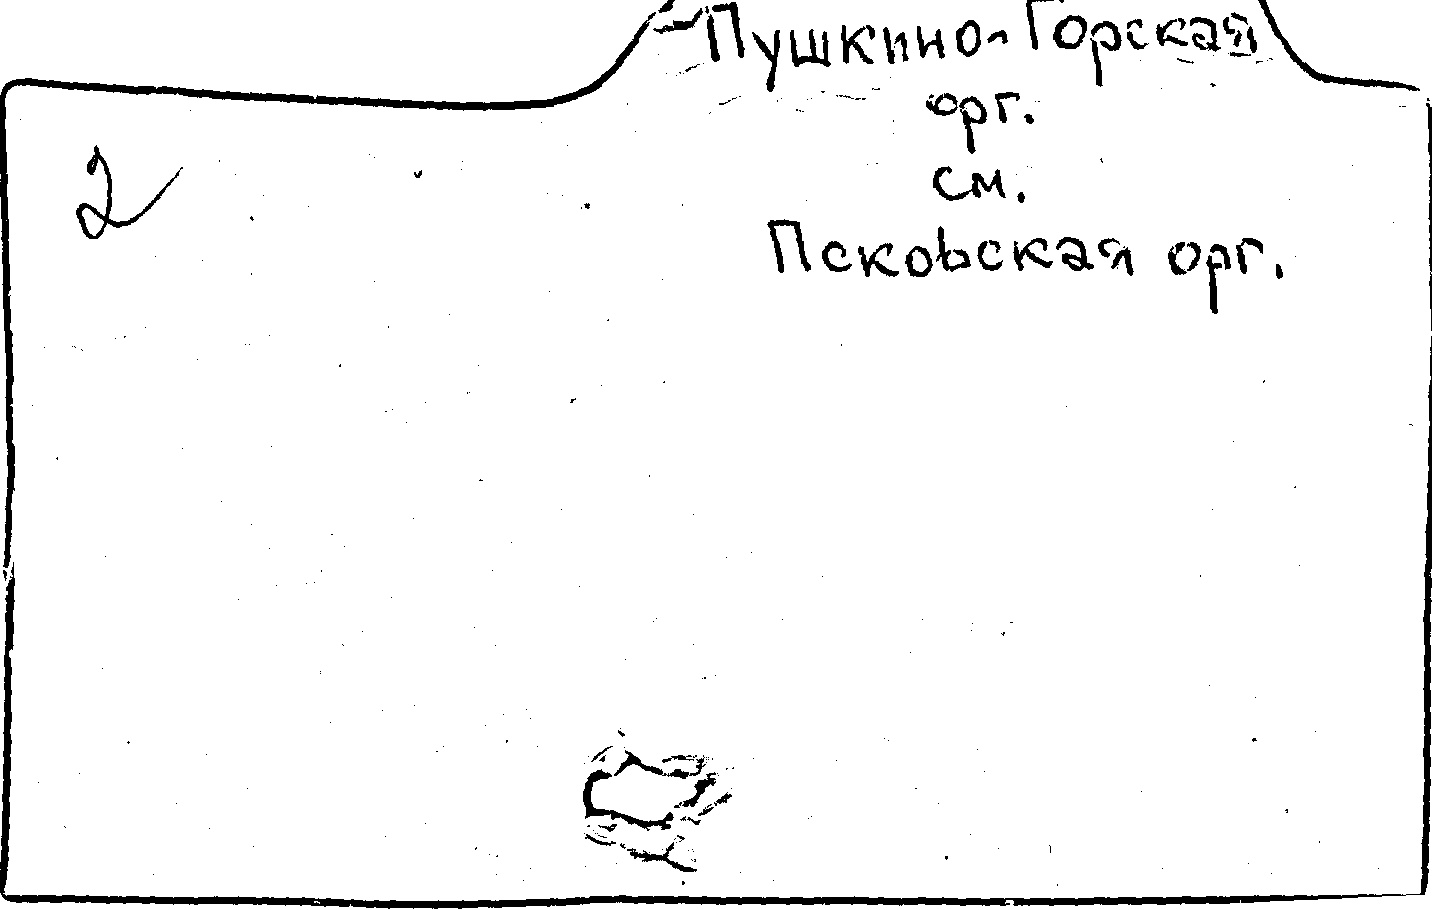 Пушкино-Горская
орг.
см.
Псковская орг.
2